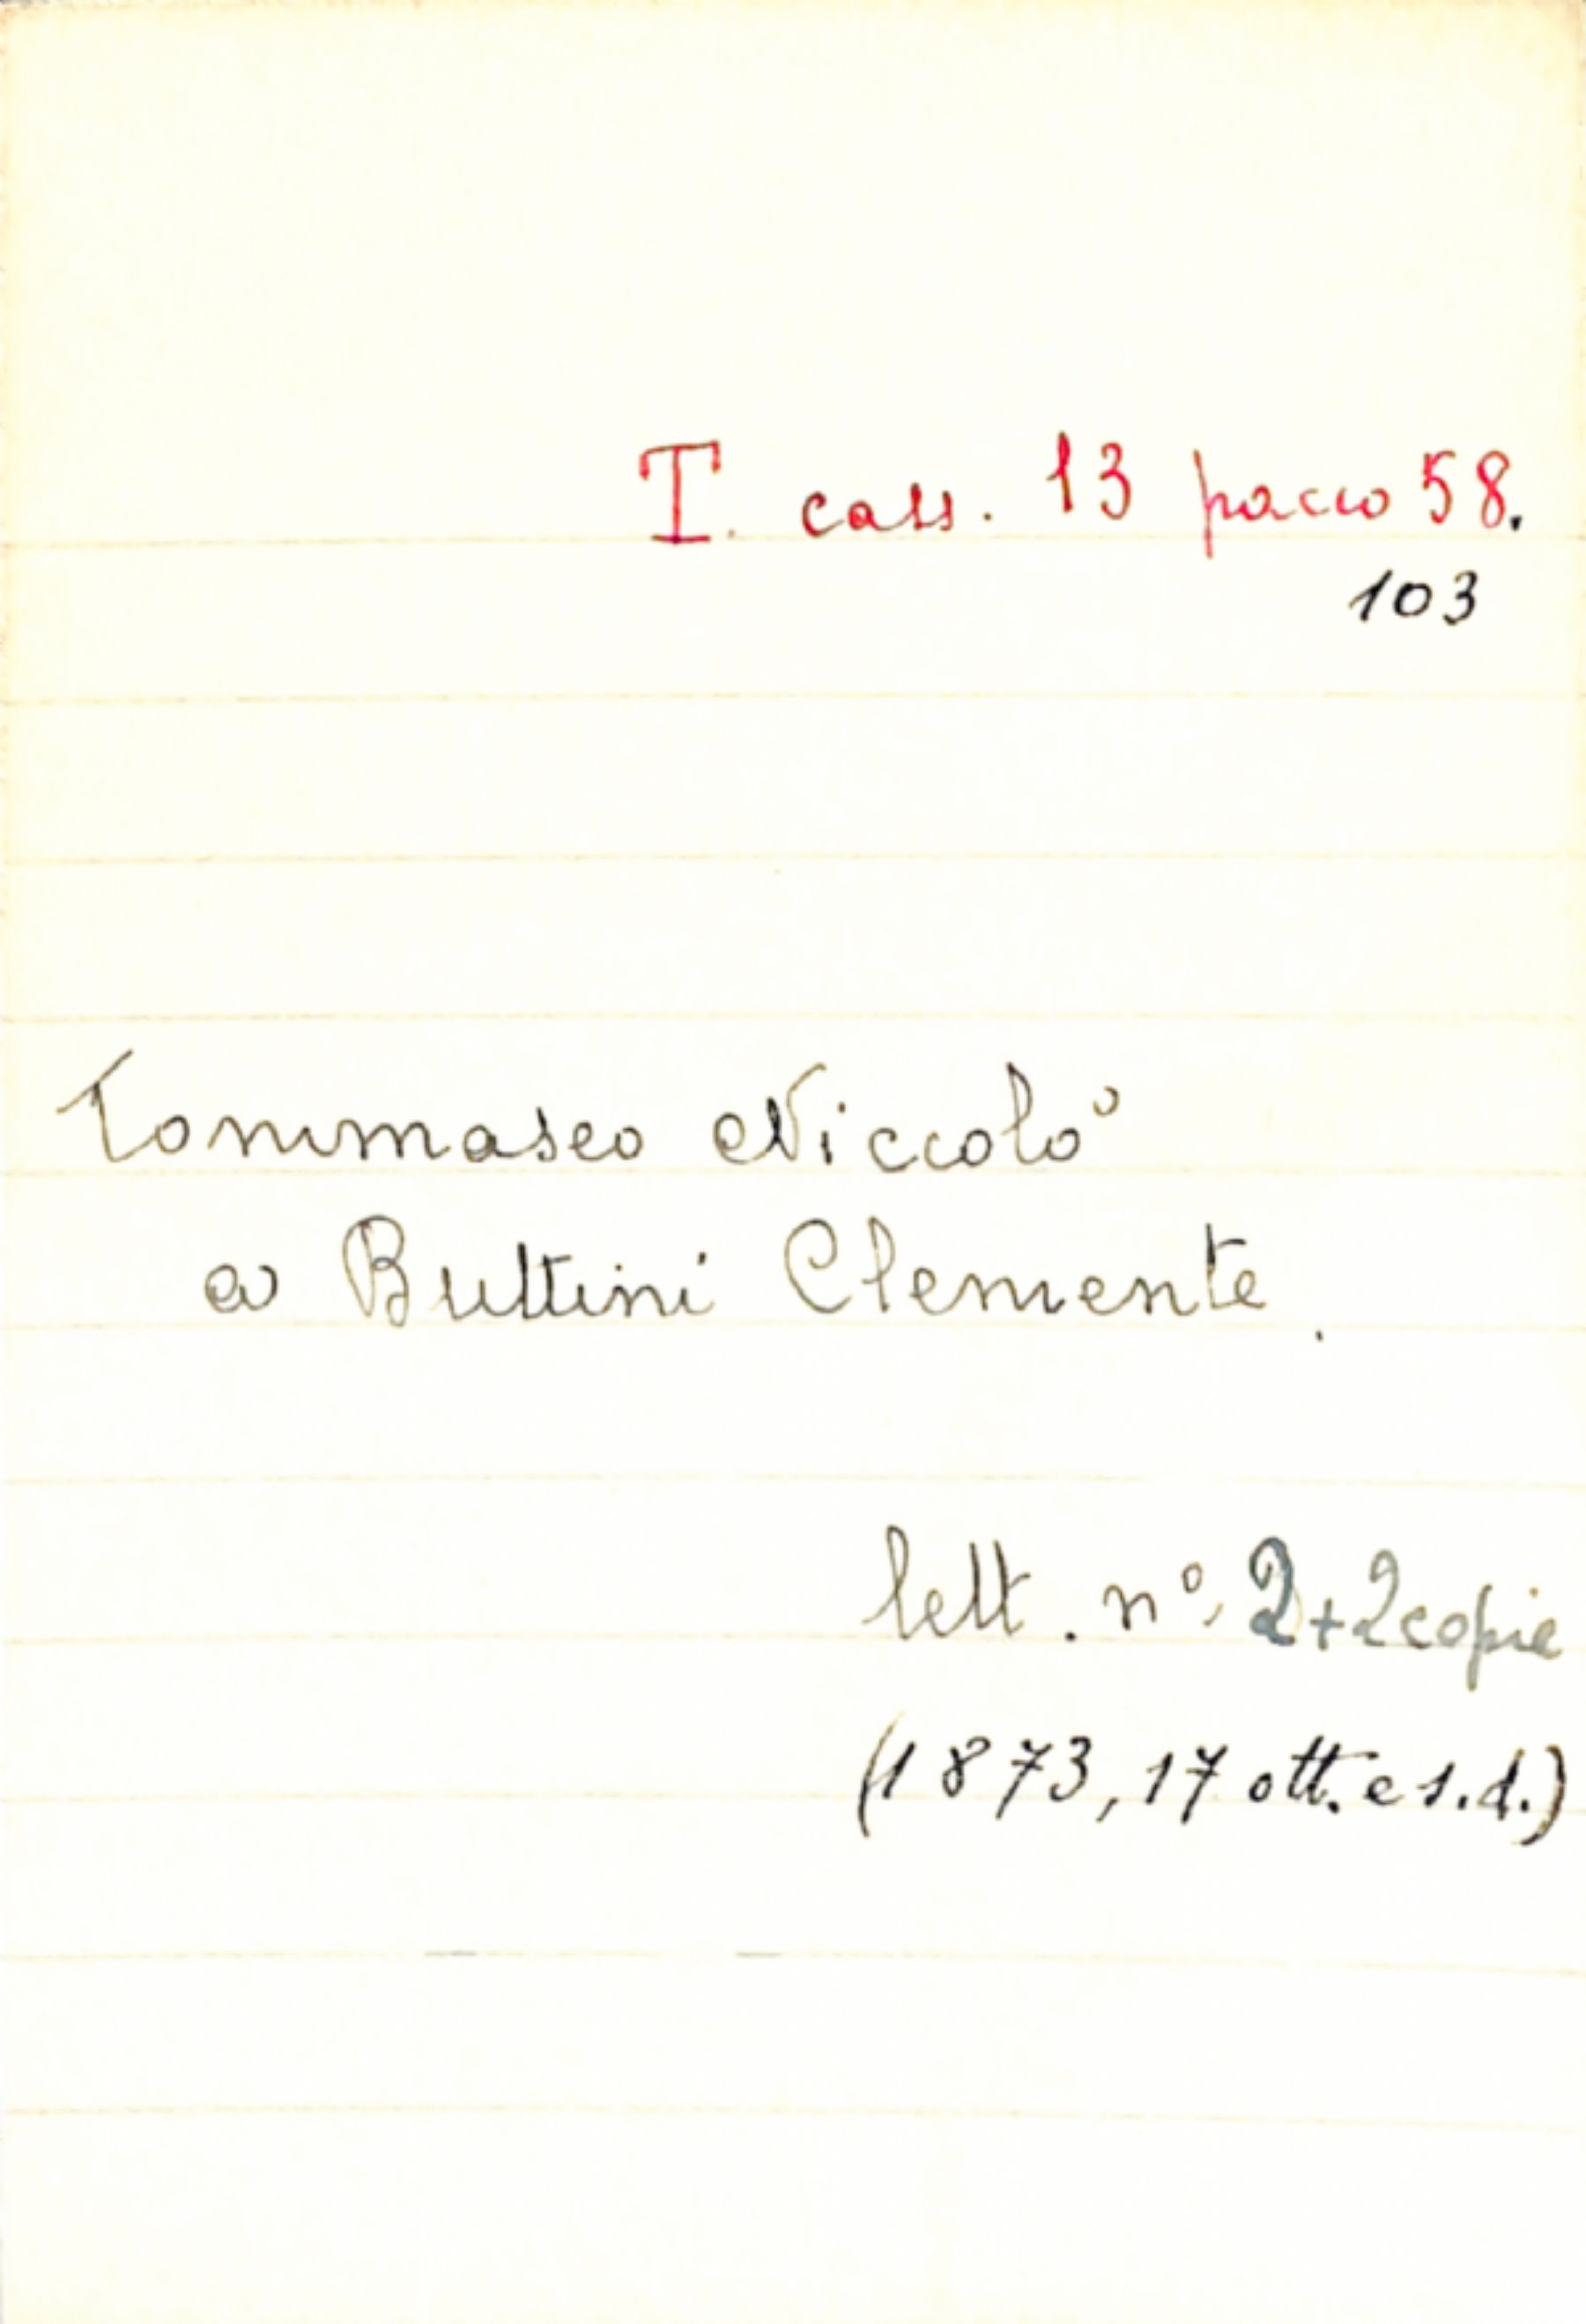 T. cass. 13 pacco 58.
103
Tommaseo Niccolò
a Buttini Clemente.
lett. n° 2+2copie
(1873, 17 ott. e s.d.)